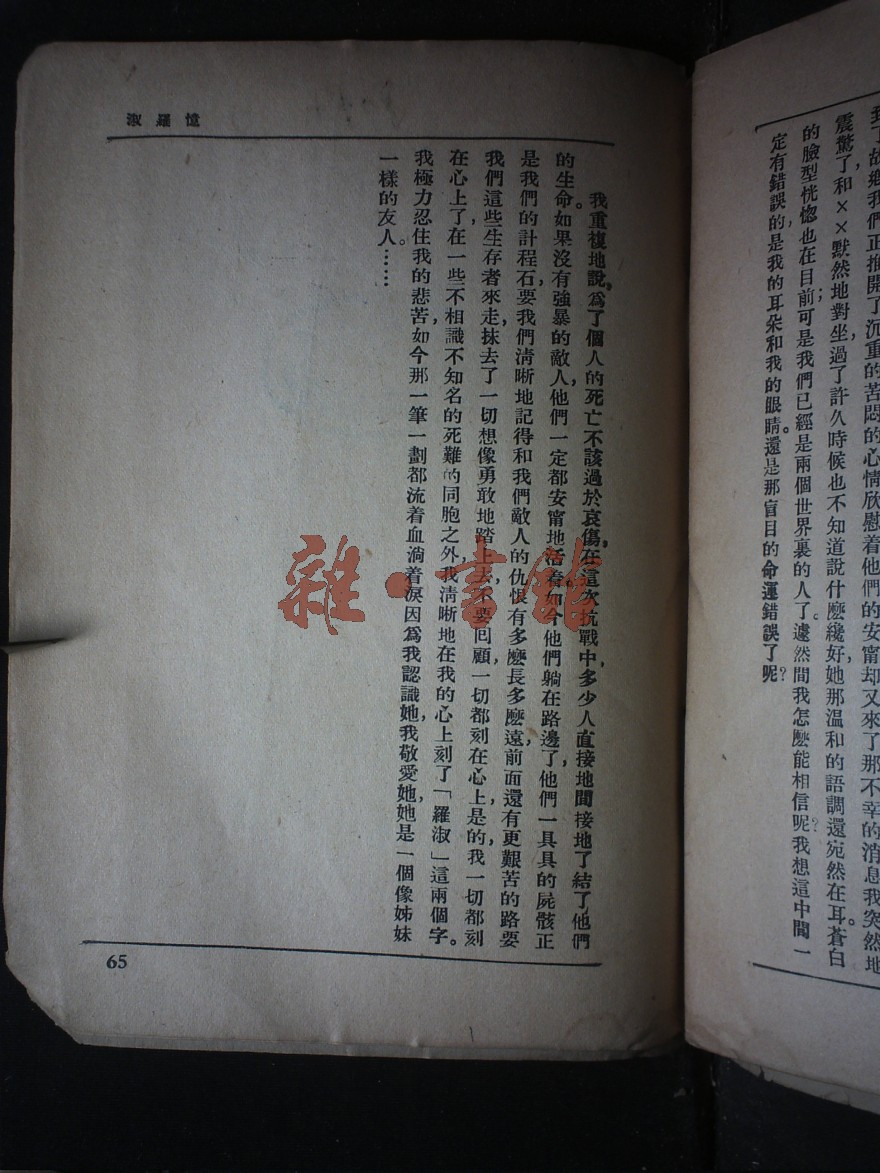 到了故鄉，我們正推開了沉重的苦悶的心情欣慰着他們的安甯却又來了那不幸的消息，我突然地
震驚了，和××默然地對坐過了許久時候也不知道說什麽纔好，她那溫和的語調還宛然在耳。蒼白
的臉型恍惚也在目前；可是我們已經是兩個世界裏的人了。遽然間我怎麽能相信呢？我想這中間一
定有錯誤的，是我的耳朵和我的眼睛。還是那盲目的命運錯誤了呢？
憶羅淑
我重複地說，爲了個人的死亡不該過於哀傷，在這次抗戰中，多少人直接地間接地了結了他們
的生命。如果沒有強暴的敵人，他們一定都安甯地活着。如今他們躺在路邊了，他們一具具的屍骸正
是我們的計程石，要我們淸晰地記得和我們敵人的仇恨有多麽長多麽遠，前面還有更艱苦的路要
我們這些生存者來走，抹去了一切想像勇敢地踏上去，不要回顧，一切都刻在心上是的，我一切都刻
在心上了，在一些不相識不知名的死難的同胞之外，我淸晰地在我的心上刻了「羅淑」這兩個字。
我極力忍住我的悲苦，如今那一筆一劃都流着血淌着淚，因爲我認識她，我敬愛她，她是一個像姊妹
一樣的友人。……
65
雜·書館